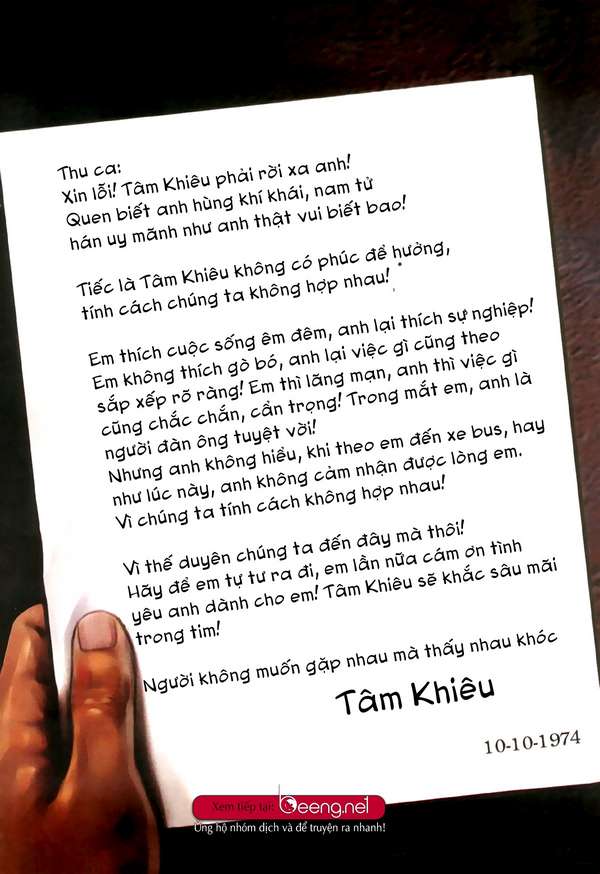 Thu ca:
Xin lỗi! Tâm Khiêu phải rời xa anh!
Quen biết anh hùng khí khái, nam tử
hán uy mãnh như anh thật vui biết bao!
Tiếc là Tâm Khiêu không có phúc để hưởng,
tính cách chúng ta không hợp nhau!
Em thích cuộc sống êm đêm, anh lại thích sự nghiệp!
Em không thích gò bó, anh lại việc gì cũng theo
sắp xếp rõ ràng! Em thì lãng mạn, anh thì việc gì
cũng chắc chắn, cẩn trọng! Trong mắt em, anh là
người đàn ông tuyệt vời!
Nhưng anh không hiểu, khi theo em đến xe bus, hay
như lúc này, anh không cảm nhận được lòng em.
Vì chúng ta tính cách không hợp nhau!
Vì thế duyên chúng ta đến đây mà thôi!
Hãy để em tự tư ra đi, em lần nữa cám ơn tình
yêu anh dành cho em! Tâm Khiêu sẽ khắc sâu mãi
trong tim!
Người không muốn gặp nhau mà thấy nhau khóc
Tâm Khiêu
10-10-1974
Xem tiếp tại: beeng.net
Ủng hộ nhóm dịch và để truyện ra nhanh!